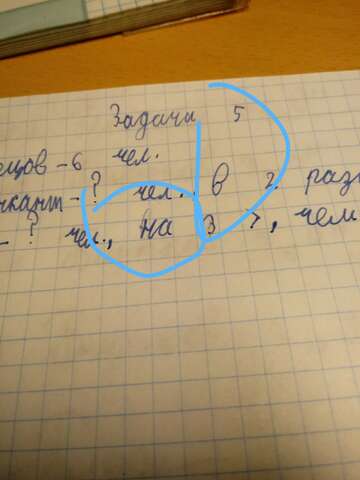 Задачи 5
ецов - 6 чел.
нкант - ? чел., в 2 раз
- ? чел., на 3 >, чем